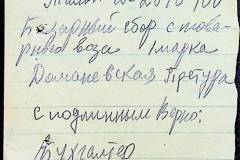 Базарный сбор с това-
рного воза 1 марка
Доманевская Претура
с подлинным Верно:
Бухгалтер